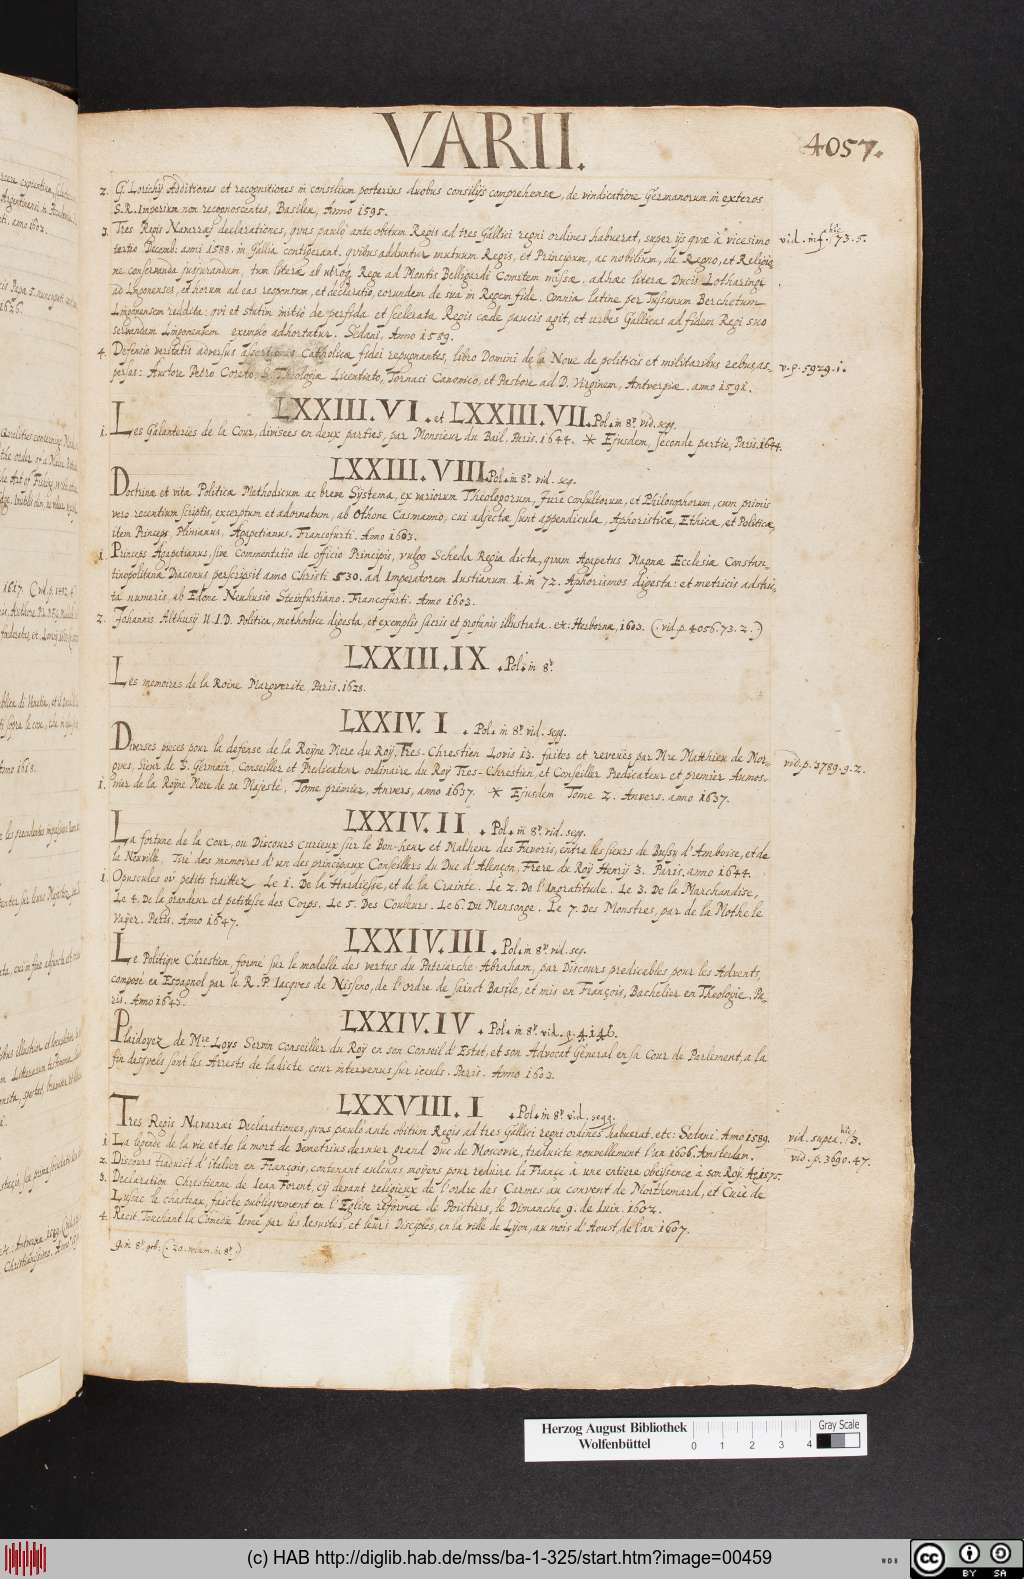 VARII.
4057.
2. G. Lorichij Additiones et recognitiones in consilium postarius duobus consilijs comprehensæ, de vindicatione Germanorum in exteros
S.R. Imperium non recognoscentes, Basileæ, Anno 1595.
3. Tres Regis Navarræ declarationes, quas paulò ante obitum Regis ad tres Gallici regni ordines habuerat, super ijs quæ à vicesimo
vid. inf. hic 73. 5.
tertio Decemb: anni 1588. in Gallia contigerant, quibus adduntur mutuum Regis, et Principum, ac nobilium, de Regno, et Religio-
ne conservanda jusjurandum, tum literæ ab utroq. Rege ad Montis Belligardi Comitem missæ, adhæc literæ Ducis Lotharingi
ad Lingonenses, et horum ad eas responsum, et declaratio, eorundem de sua in Regem fide. Omnia latine per Tussanum Berchetum
Lingonensem reddita: qui et statim initio de perfida et scelerata Regis cæde paucis agit, et urbes Gallicas ad fidem Regi suo
servandam Lingonensem exemplo adhortatur. Sedani, Anno 1589.
4. Defensio veritatis adversus assertiones Catholicæ fidei repugnantes, libro Domini de la Noue de politicis et militaribus rebus, as-
v. p. 5929. 1.
persas: Auctore Petro Coreto, S. Theologiæ Licentiato, Tornaci Canonico, et Pastore ad D. Virginem, Antverpiæ. anno 1591.
LXXIII.VI. et LXXIII.VII. Pol. in 8º vid. seqq.
1. Les Galanteries de la Cour, divisees en deux parties, par Monsieur du Bail. Paris. 1644. * Ejusdem, seconde partie, Paris. 1644.
LXXIII.VIII. Pol. in 8º vid. seq.
Doctrinæ et vitæ Politicæ Methodicum ac breve Systema, ex variorum Theologorum, Jure consultorum, et Philosophorum, cum primis
vero recentium scriptis, excerptum et adornatum, ab Othone Casmanno, cui adjectæ sunt appendicula, Aphoristicæ, Ethicæ, et Politicæ,
item Princeps, Plinianus, Agapetianus. Francofurti. Anno 1603.
1. Princeps Agapetianus, sive Commentatio de officio Principis, vulgo Scheda Regia dicta, quam Agapetus Magnæ Ecclesiæ Constan-
tinopolitanæ Diaconus perscripsit anno Christi 530. ad Imperatorem Iustianum I. in 72. Aphorismos digesta: et metricis adstric-
ta numeris, ab Edone Neuhusio Steinfurtiano. Francofurti. Anno 1603.
2. Johannis Althusij U.I.D. Politica, methodice digesta, et exemplis sacris et profanis illustrata. etc: Herbornæ, 1603. (: vid. p. 4056. 73. 2. :)
LXXIII.IX . Pol. in 8º.
Les memoires de la Roine Marguerite, Paris. 1628.
LXXIV. I . Pol. in 8º. vid. seqq.
1. Diverses pieces pour la defense de la Royne Mere du Roy Tres-Chrestien Lovis 13. faites et reveuës par Mre Matthieu de Mor-
vid. p. 3789. 9. 2.
gues, Sieur de S. Germain, Conseiller et Predicateur ordinaire du Roy Tres-Chrestien, et Conseiller Predicateur et premier Aumos-
nier de la Royne Mere de sa Majesté, Tome premier, Anvers, anno 1637. * Ejusdem Tome 2. Anvers. anno 1637.
LXXIV.II . Pol. in 8º. vid. seqq.
La fortune de la Cour, ou Discours curieux sur le Bon-heur et Malheur des Favoris, entre les sieurs de Bussy d'Amboise, et de
la Neuville, Tiré des memoires d'un des principaux Conseillers du Duc d'Allençon, Frere du Roy Henry 3. Paris, anno 1644.
1. Opuscules où petits traittez Le 1. De la Hardiesse, et de la Crainte. Le 2. De l'Ingratitude. Le 3. De la Marchandise,
Le 4. De la grandeur et petitesse des Corps. Le 5. Des Couleurs. Le 6. Du Mensonge. Le 7. Des Monstres, par de la Mothe le
Vayer. Paris. Anno 1647.
LXXIV.III . Pol. in 8º. vid. seq.
Le Politique Chrestien, formé sur le modelle des vertus du Patriarche Abraham, par Discours predicables, pour les Advents,
composé en Espagnol par le R.P. Iacques de Nisseno, de l'Ordre de sainct Basile, et mis en François, Bachelier en Theologie. Pa-
ris. Anno 1643.
LXXIV.IV . Pol. in 8º. vid. q. 4146.
Plaidoyez de Mre Loys Servin Conseiller du Roy en son Conseil d'Estat, et son Advocat General en sa Cour de Parlement, a la
fin desquels sont les Arrests de ladicte cour intervenus sur iceuls. Paris. Anno 1603.
LXXVIII. I . Pol. in 8º. vid. seqq.
Tres Regis Navarræi Declarationes, quas paulò ante obitum Regis ad tres Gallici regni ordines habuerat. etc: Sedani. Anno 1589.
vid. supra. hic 3.
1. La legende de la vie et de la mort de Demetrius dernier grand Duc de Moscovie, traduicte nouvellement l'an 1606. Amsterdam.
vid. p. 3690. 47.
2. Discours traduict d'italien en François, contenant aulcuns moyens pour reduire la France à une entiere obeissence à son Roy. Ao 1575.
3. Declaration Chrestienne de Iean Forent, cy devant religieux de l'ordre des Carmes au convent de Morthemard, et Curé de
Lussac le chasteau, faicte publiquement en l'Eglise reformée de Poictiers, le Dimanche 9. de Iuin. 1602.
4. Recit Touchant la Comedie Iouee par les Iesuites, et leurs Disciples, en la ville de Lyon, au mois d'Aoust, de l'an 1607.
Herzog August Bibliothek
Wolfenbüttel
0 1 2 3 4
Gray Scale
(c) HAB http://diglib.hab.de/mss/ba-1-325/start.htm?image=00459
WDB
cc BY SA